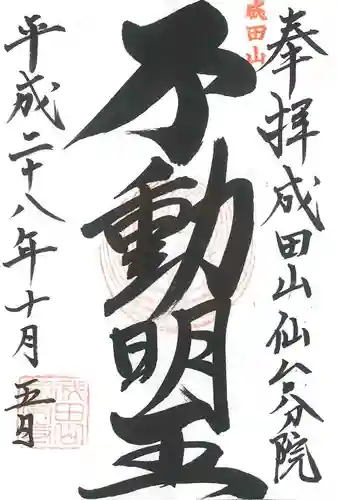 奉拝成田山仙台分院
成田山
不動明王
平成二十八年十月五日
成田山